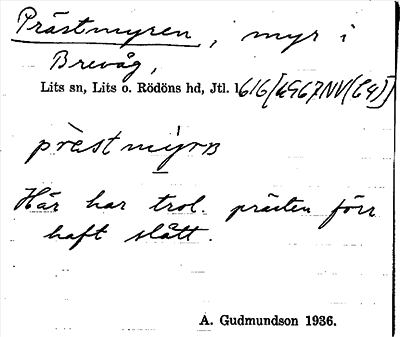 Prästmyren, myr i
Brevåg,
Lits sn, Lits o. Rödöns hd, Jtl. 1616
præstmỳrɴ
Här har trol. prästen förr
haft slått.
A. Gudmundson 1936.